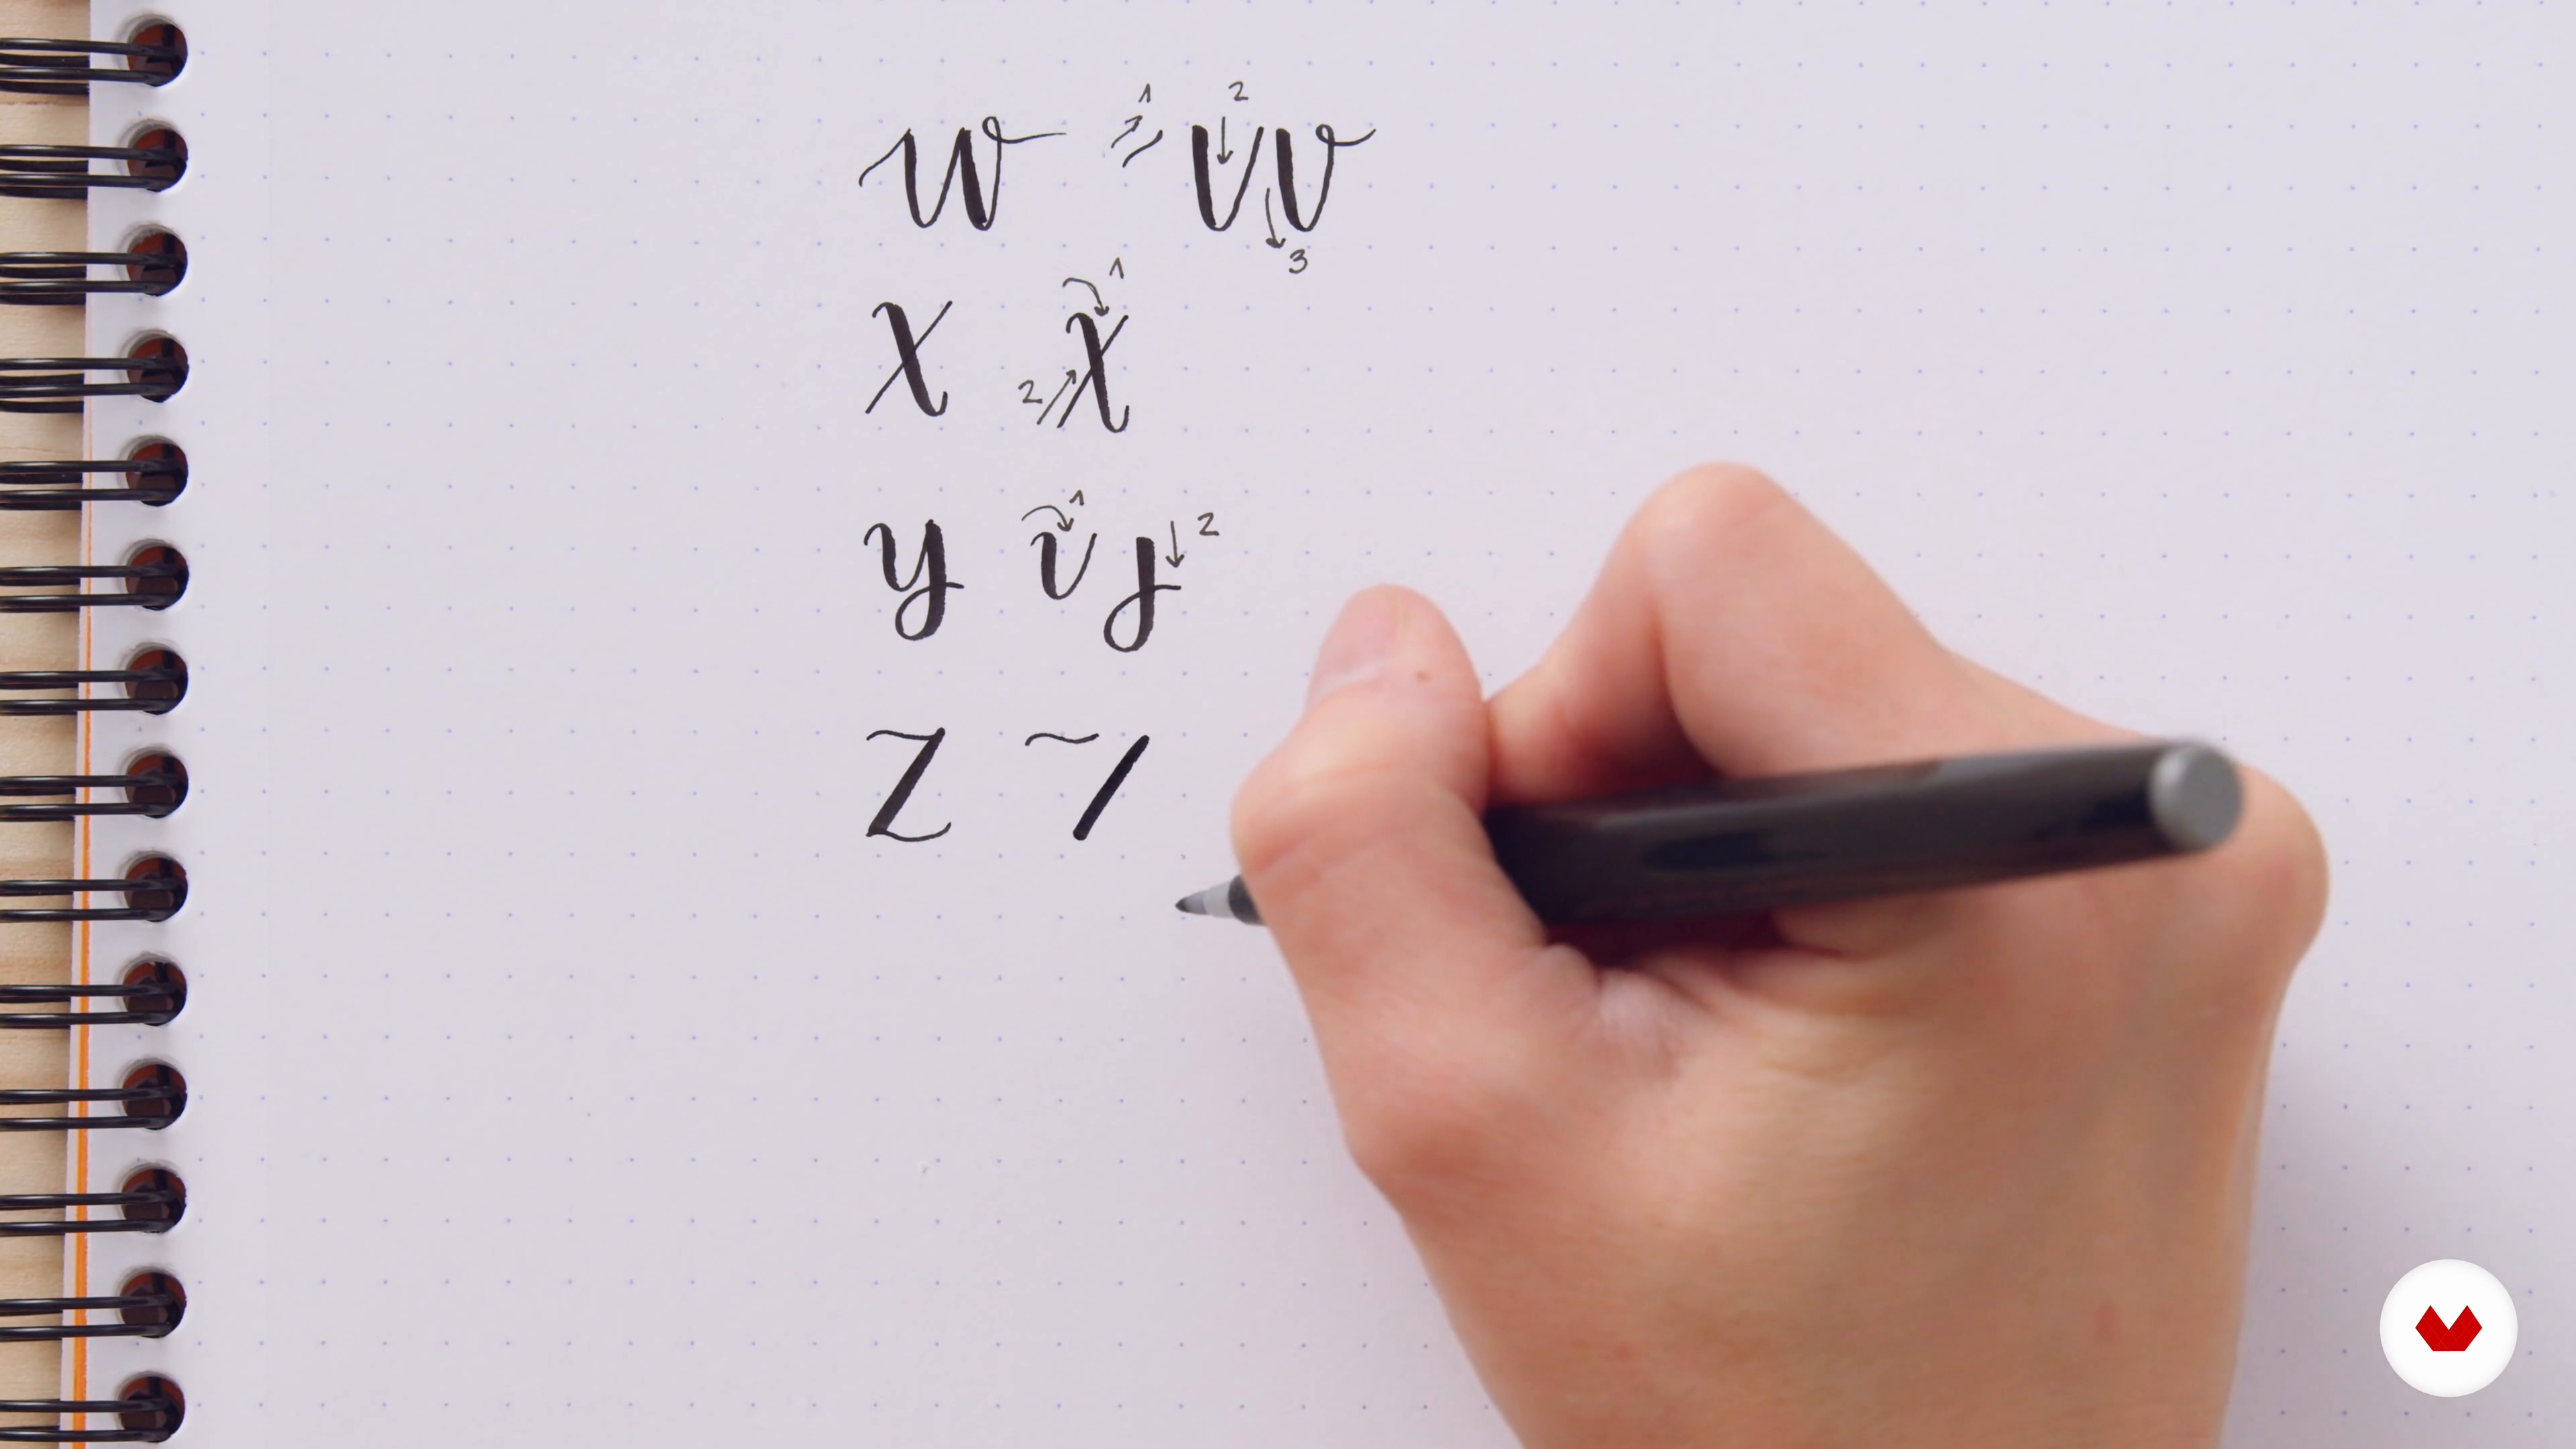 w 1 2 v v 3
x 1 2 x
y 1 v j 2
z ~ /